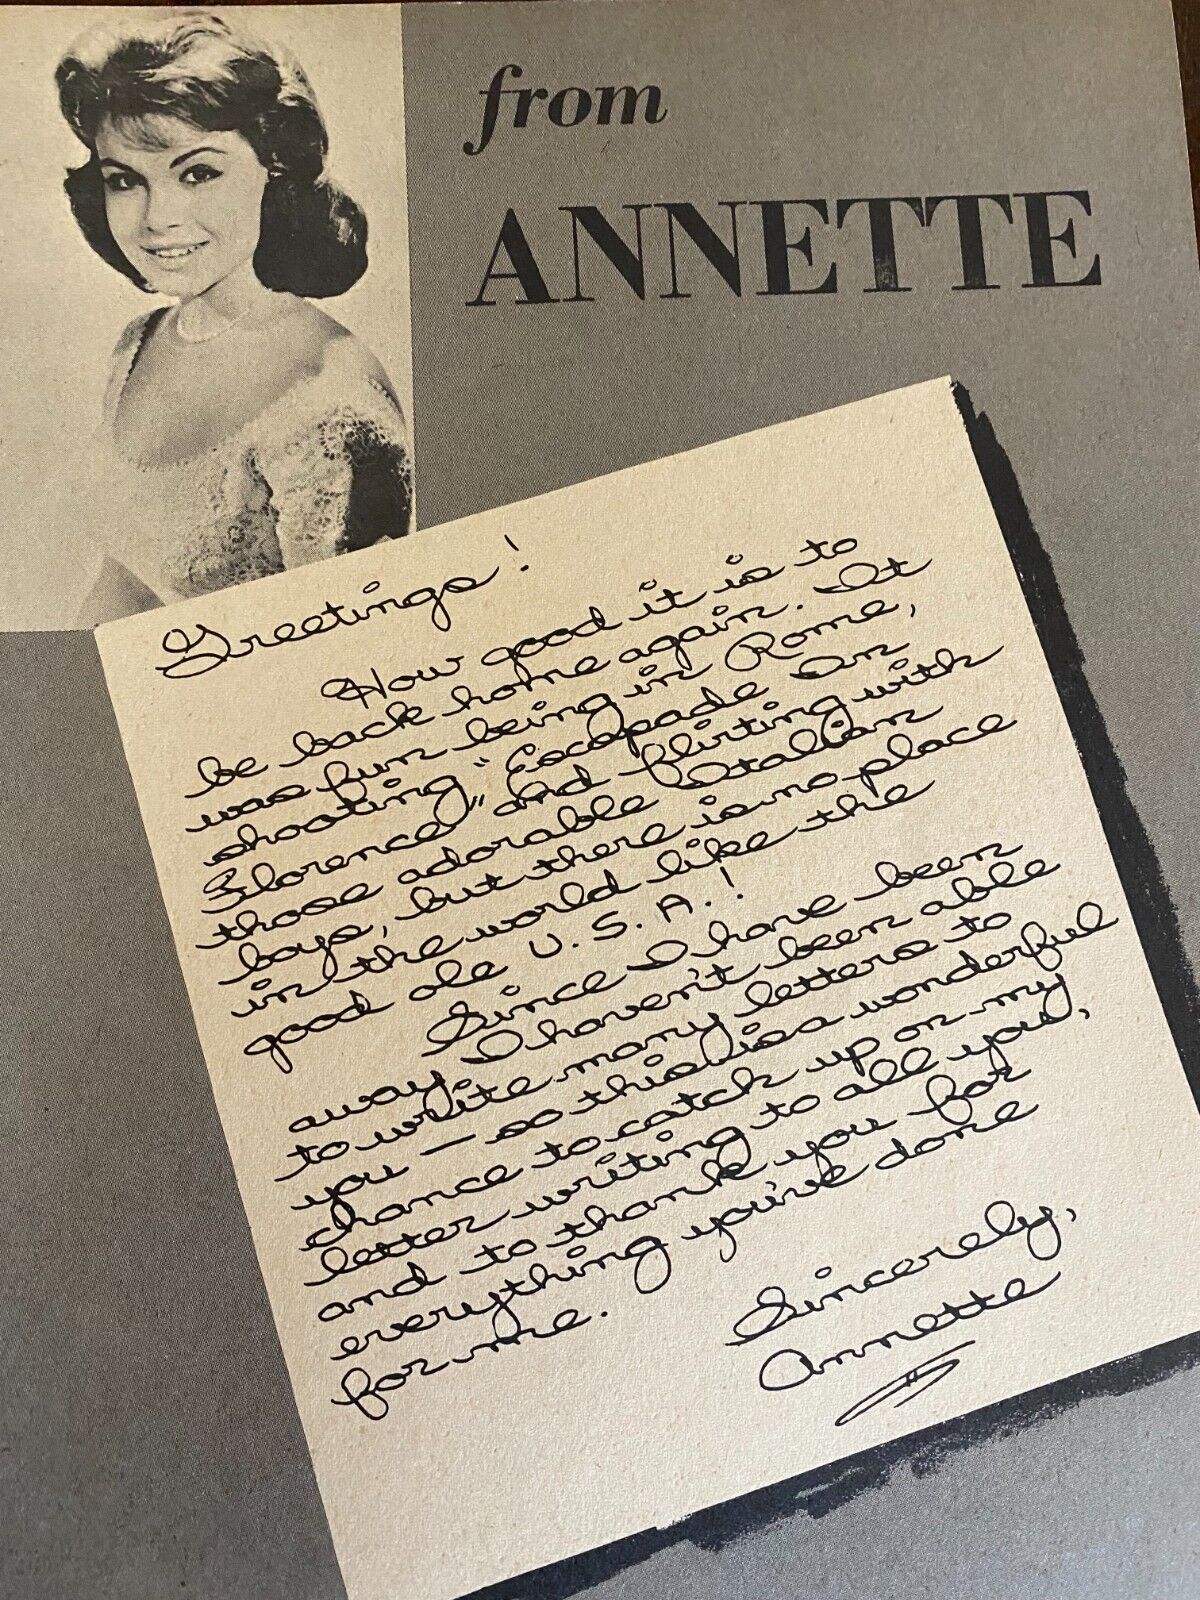 from
ANNETTE
Greetings!
How good it is to
be back home again. It
was fun being in Rome,
shooting "Escapade In
Florence" and flirting with
those adorable Italian
boys, but there is no place
in the world like the
good ole U.S.A.!
Since I have been
away I haven't been able
to write many letters to
you — so this is a wonderful
chance to catch up on my
letter writing to all you,
and to thank you for
everything you've done
for me.
Sincerely,
Annette